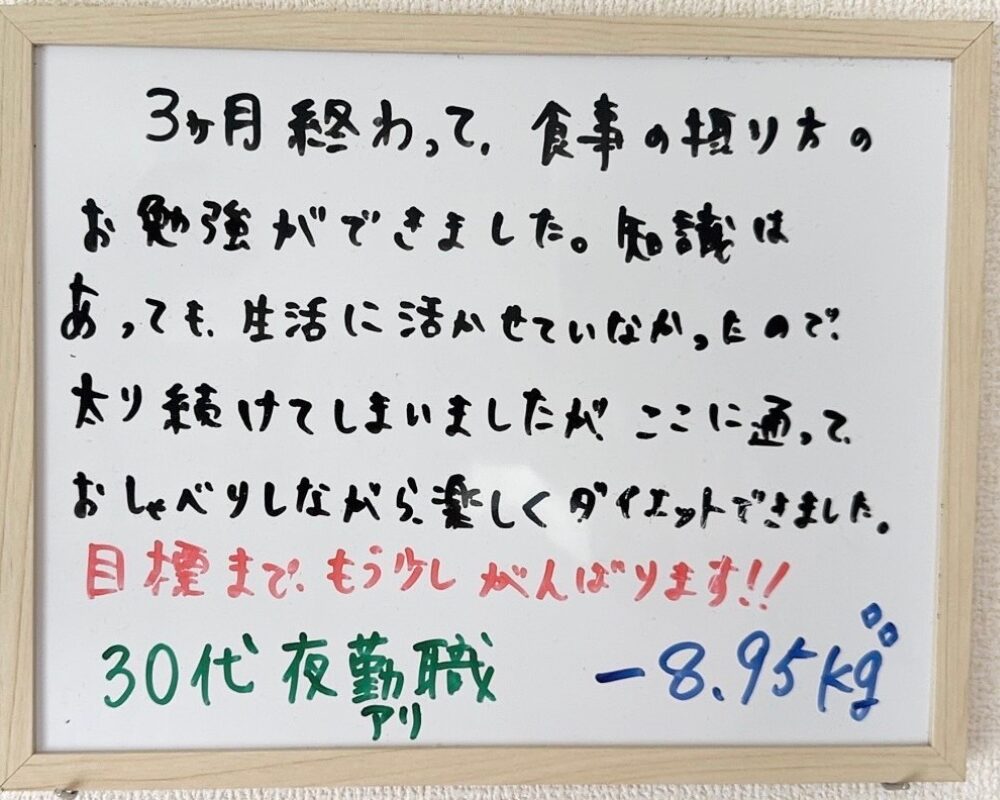 3ヶ月終わって、食事の摂り方の
お勉強ができました。知識は
あっても、生活に活かせていなかったので、
太り続けてしまいましたが、ここに通って、
おしゃべりしながら、楽しくダイエットできました。
目標まで、もう少しがんばります!!
30代 夜勤職
アリ
-8.95kg